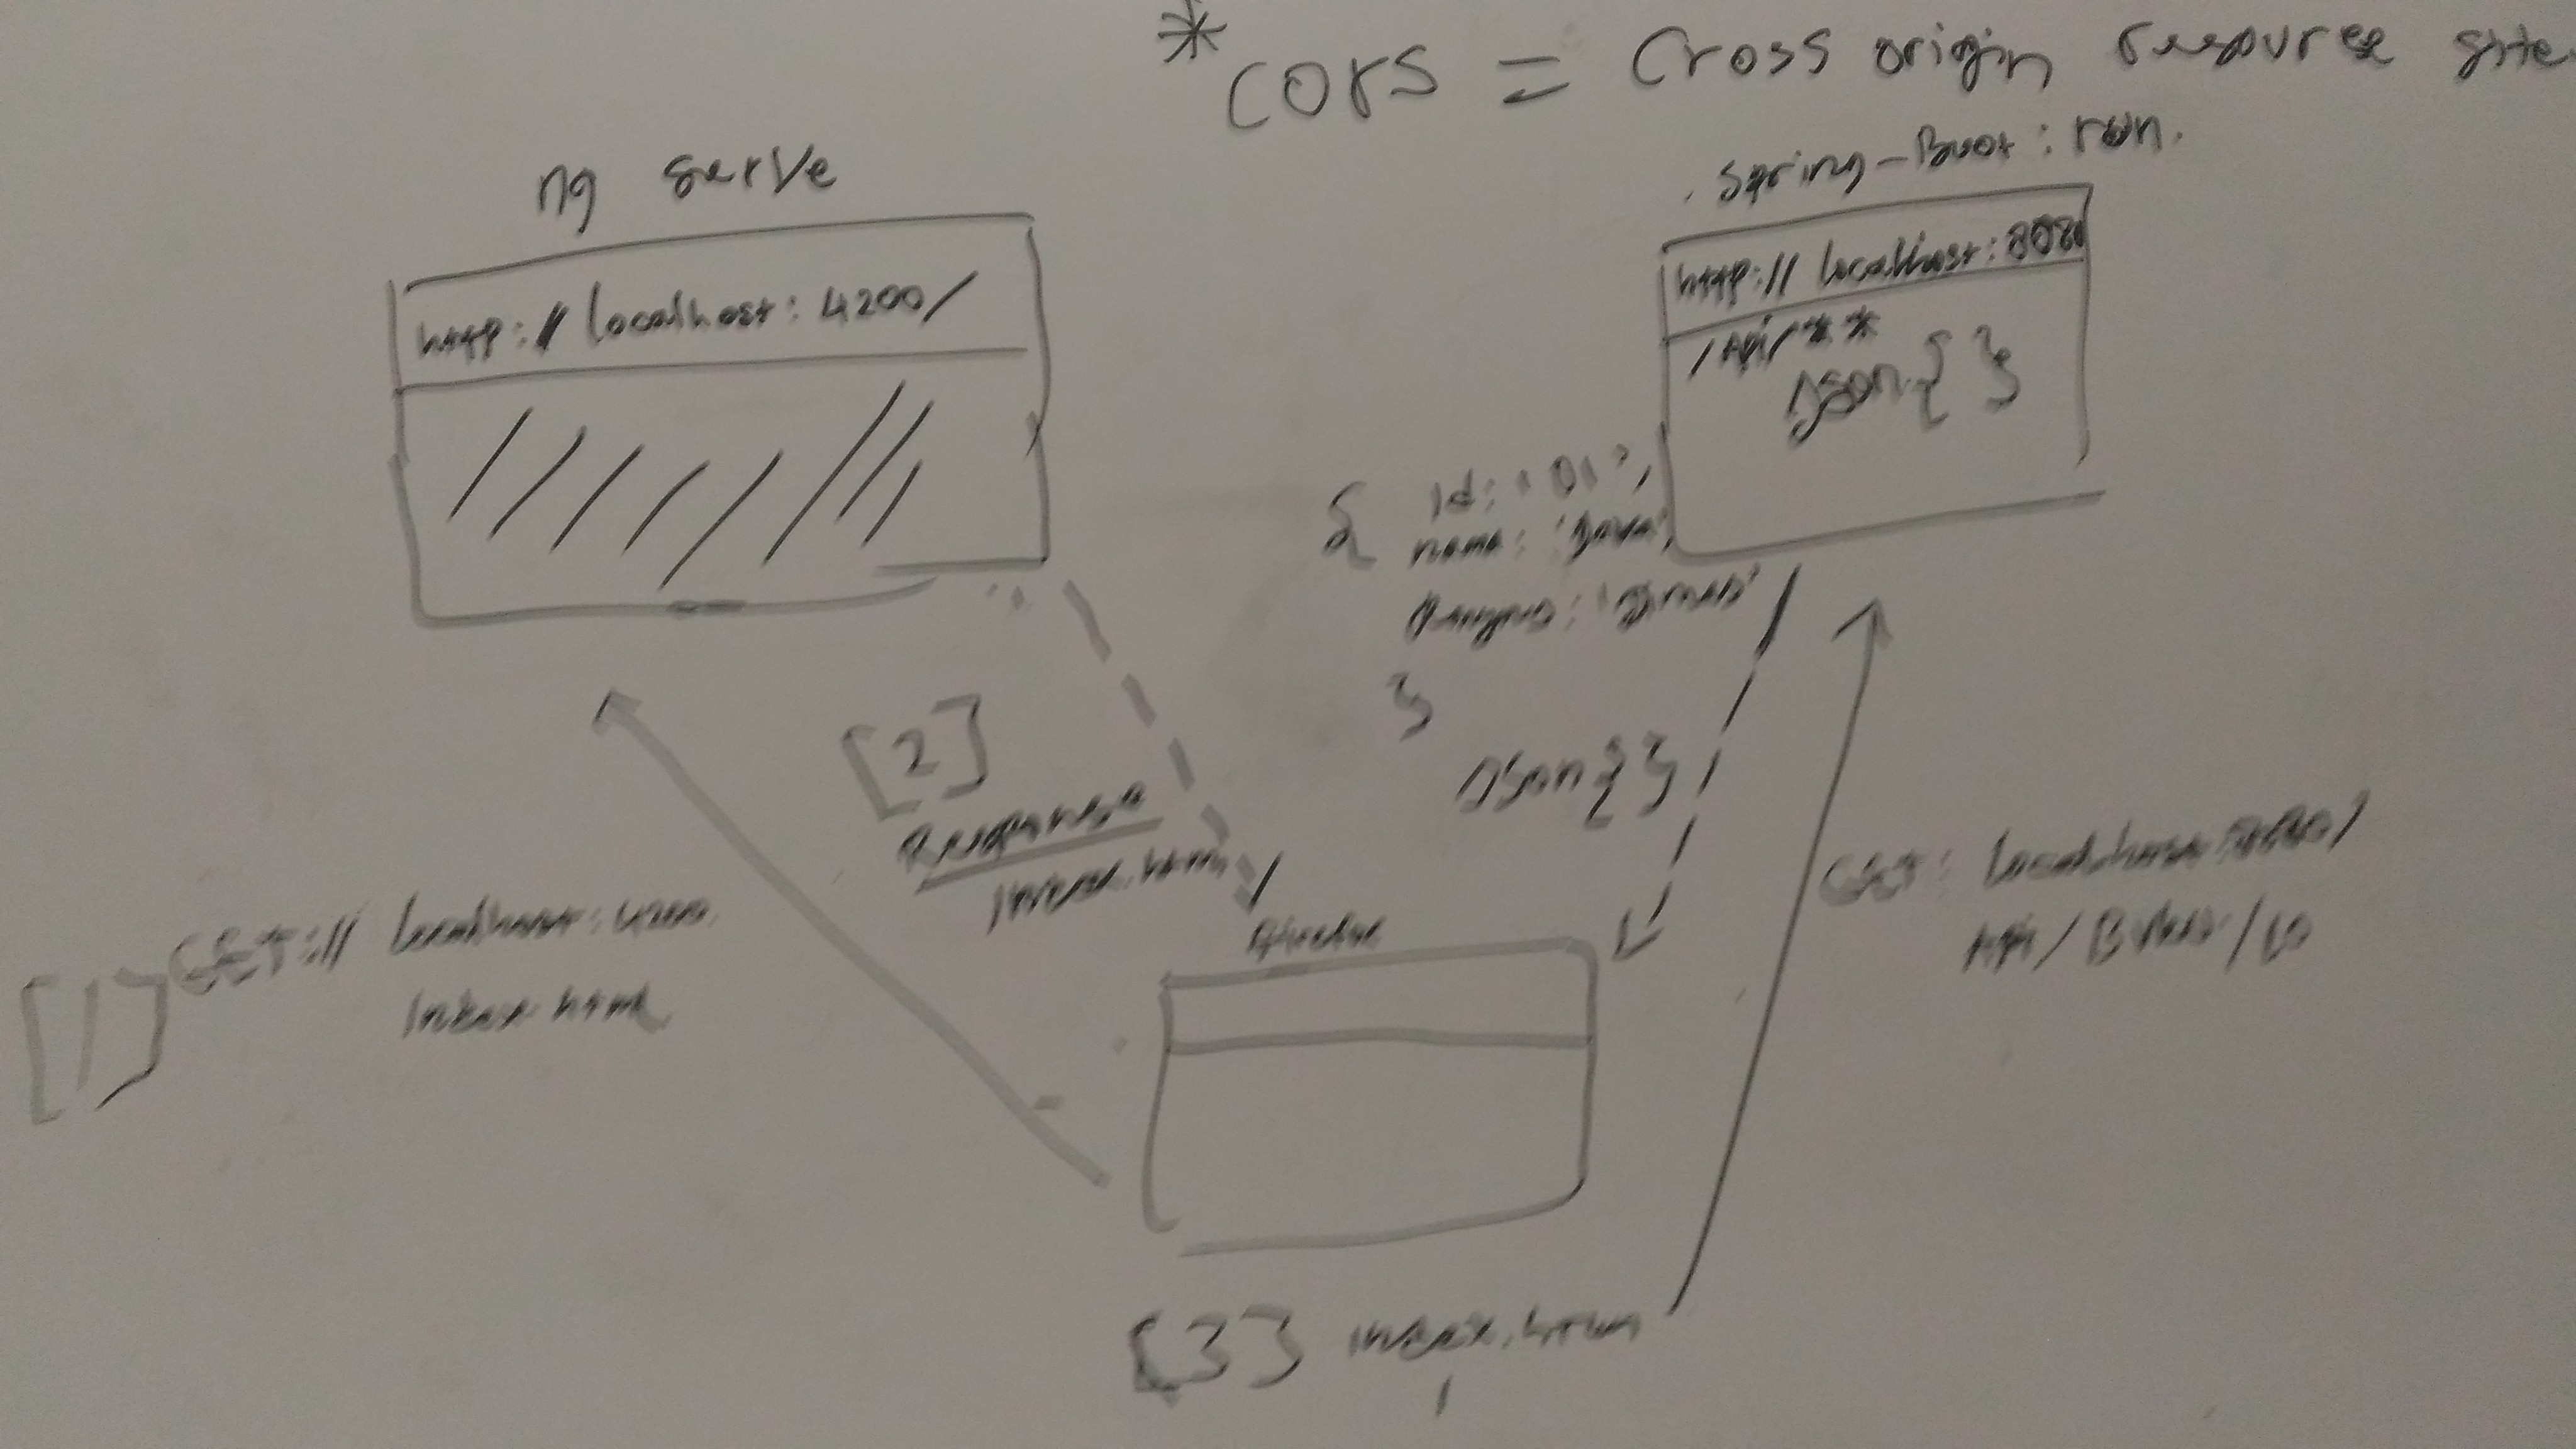 * CORS = Cross origin resource site.
ng serve
http:// localhost: 4200/
Spring-Boot: run.
http:// localhost: 8080
/Api/**
JSON { }
{ id: '01',
name:
}
JSON { }
[2]
Response
index.html
[1] GET:// localhost: 4200
index.html
GET: localhost:8080/
Api/
[3] index.html